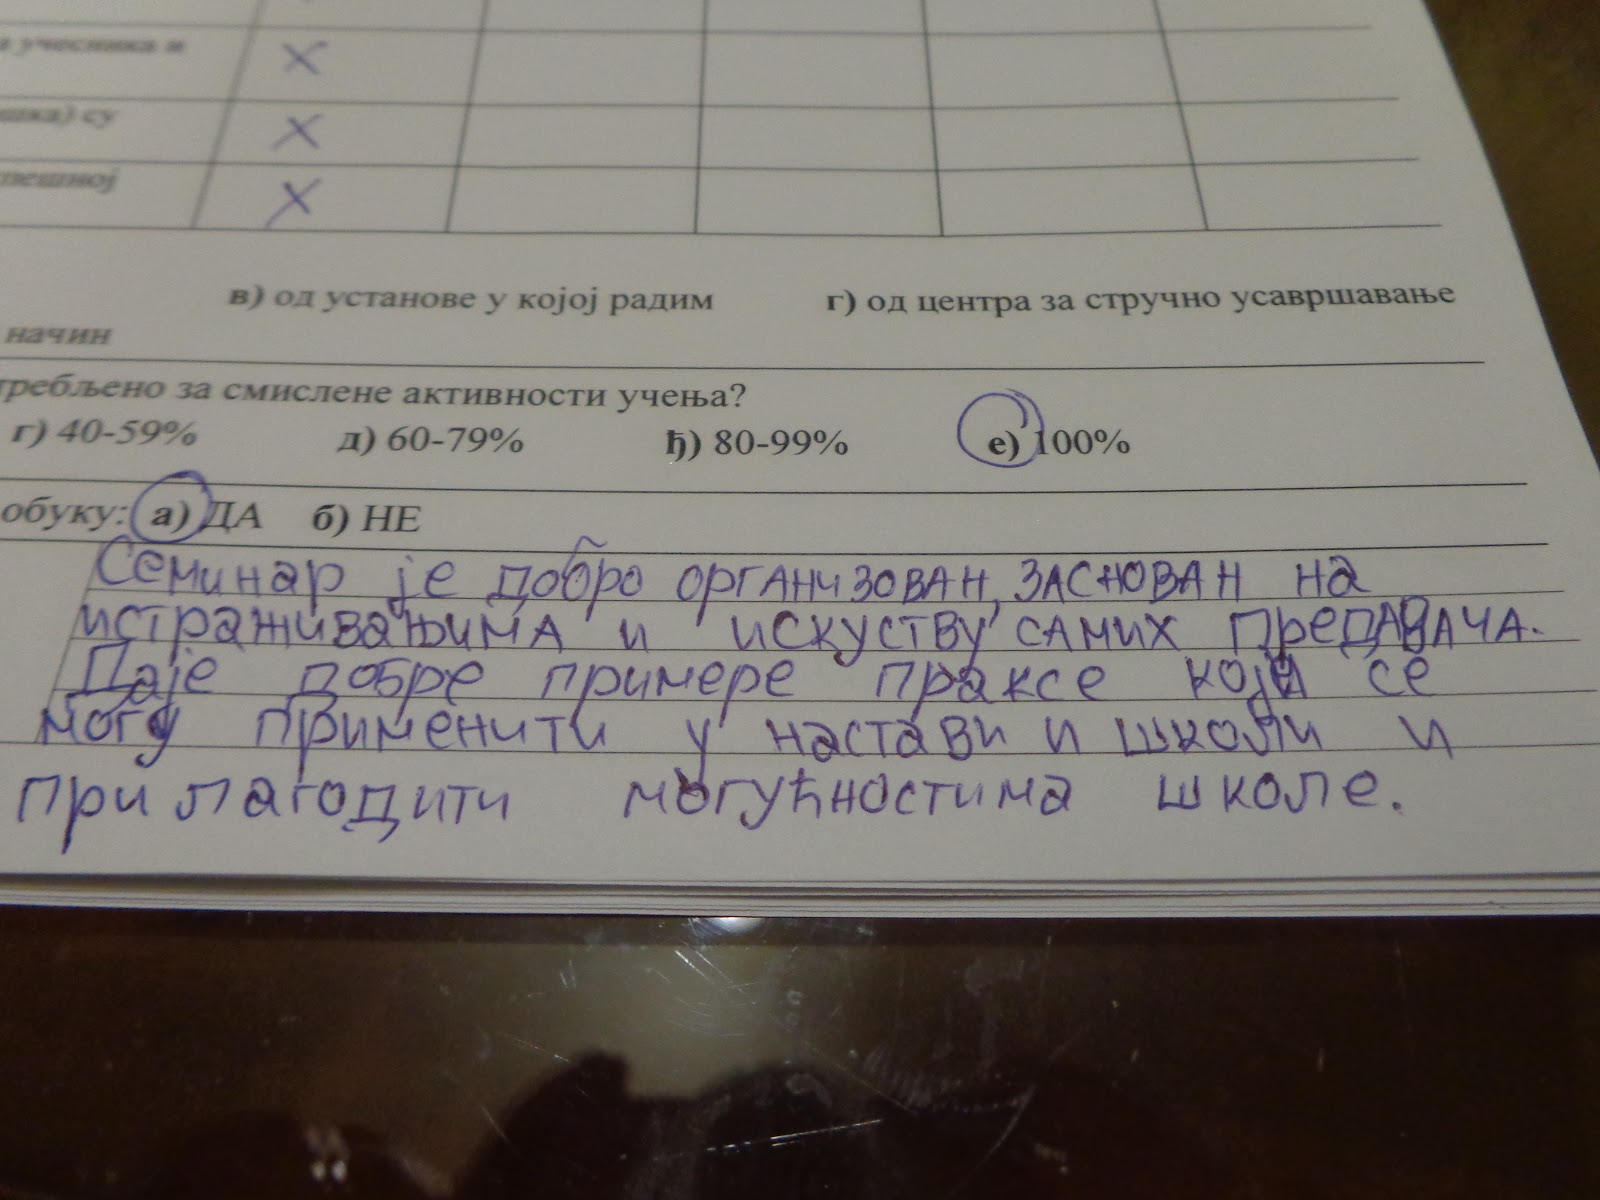 учесника и
су
в) од установе у којој радим г) од центра за стручно усавршавање
начин
за смислене активности учења?
г) 40-59% д) 60-79% ђ) 80-99% е) 100%
обуку: а) ДА б) НЕ
Семинар је добро организован, заснован на
истраживањима и искуству самих предавача.
Даје добре примере праксе који се
могу применити у настави и школи и
прилагодити могућностима школе.